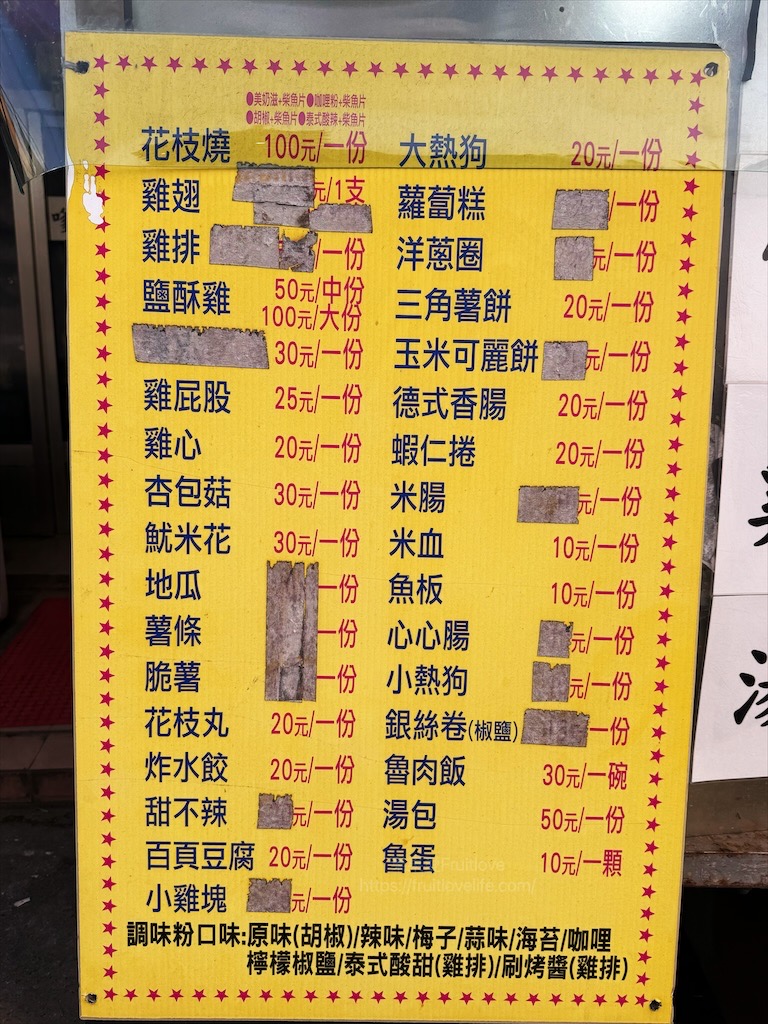 ●美奶滋+柴魚片●咖哩粉+柴魚片
●胡椒+柴魚片●泰式酸辣+柴魚片
花枝燒 100元/一份
雞翅 元/1支
雞排 /一份
鹽酥雞 50元/中份
100元/大份
30元/一份
雞屁股 25元/一份
雞心 20元/一份
杏包菇 30元/一份
魷米花 30元/一份
地瓜 一份
薯條 一份
脆薯 一份
花枝丸 20元/一份
炸水餃 20元/一份
甜不辣 元/一份
百頁豆腐 20元/一份
小雞塊 元/一份
大熱狗 20元/一份
蘿蔔糕 /一份
洋蔥圈 元/一份
三角薯餅 20元/一份
玉米可麗餅 元/一份
德式香腸 20元/一份
蝦仁捲 20元/一份
米腸 元/一份
米血 10元/一份
魚板 10元/一份
心心腸 元/一份
小熱狗 元/一份
銀絲卷(椒鹽) 一份
魯肉飯 30元/一碗
湯包 50元/一份
魯蛋 10元/一顆
調味粉口味:原味(胡椒)/辣味/梅子/蒜味/海苔/咖哩
檸檬椒鹽/泰式酸甜(雞排)/刷烤醬(雞排)
Fruitlove
https://fruitlovelife.com/